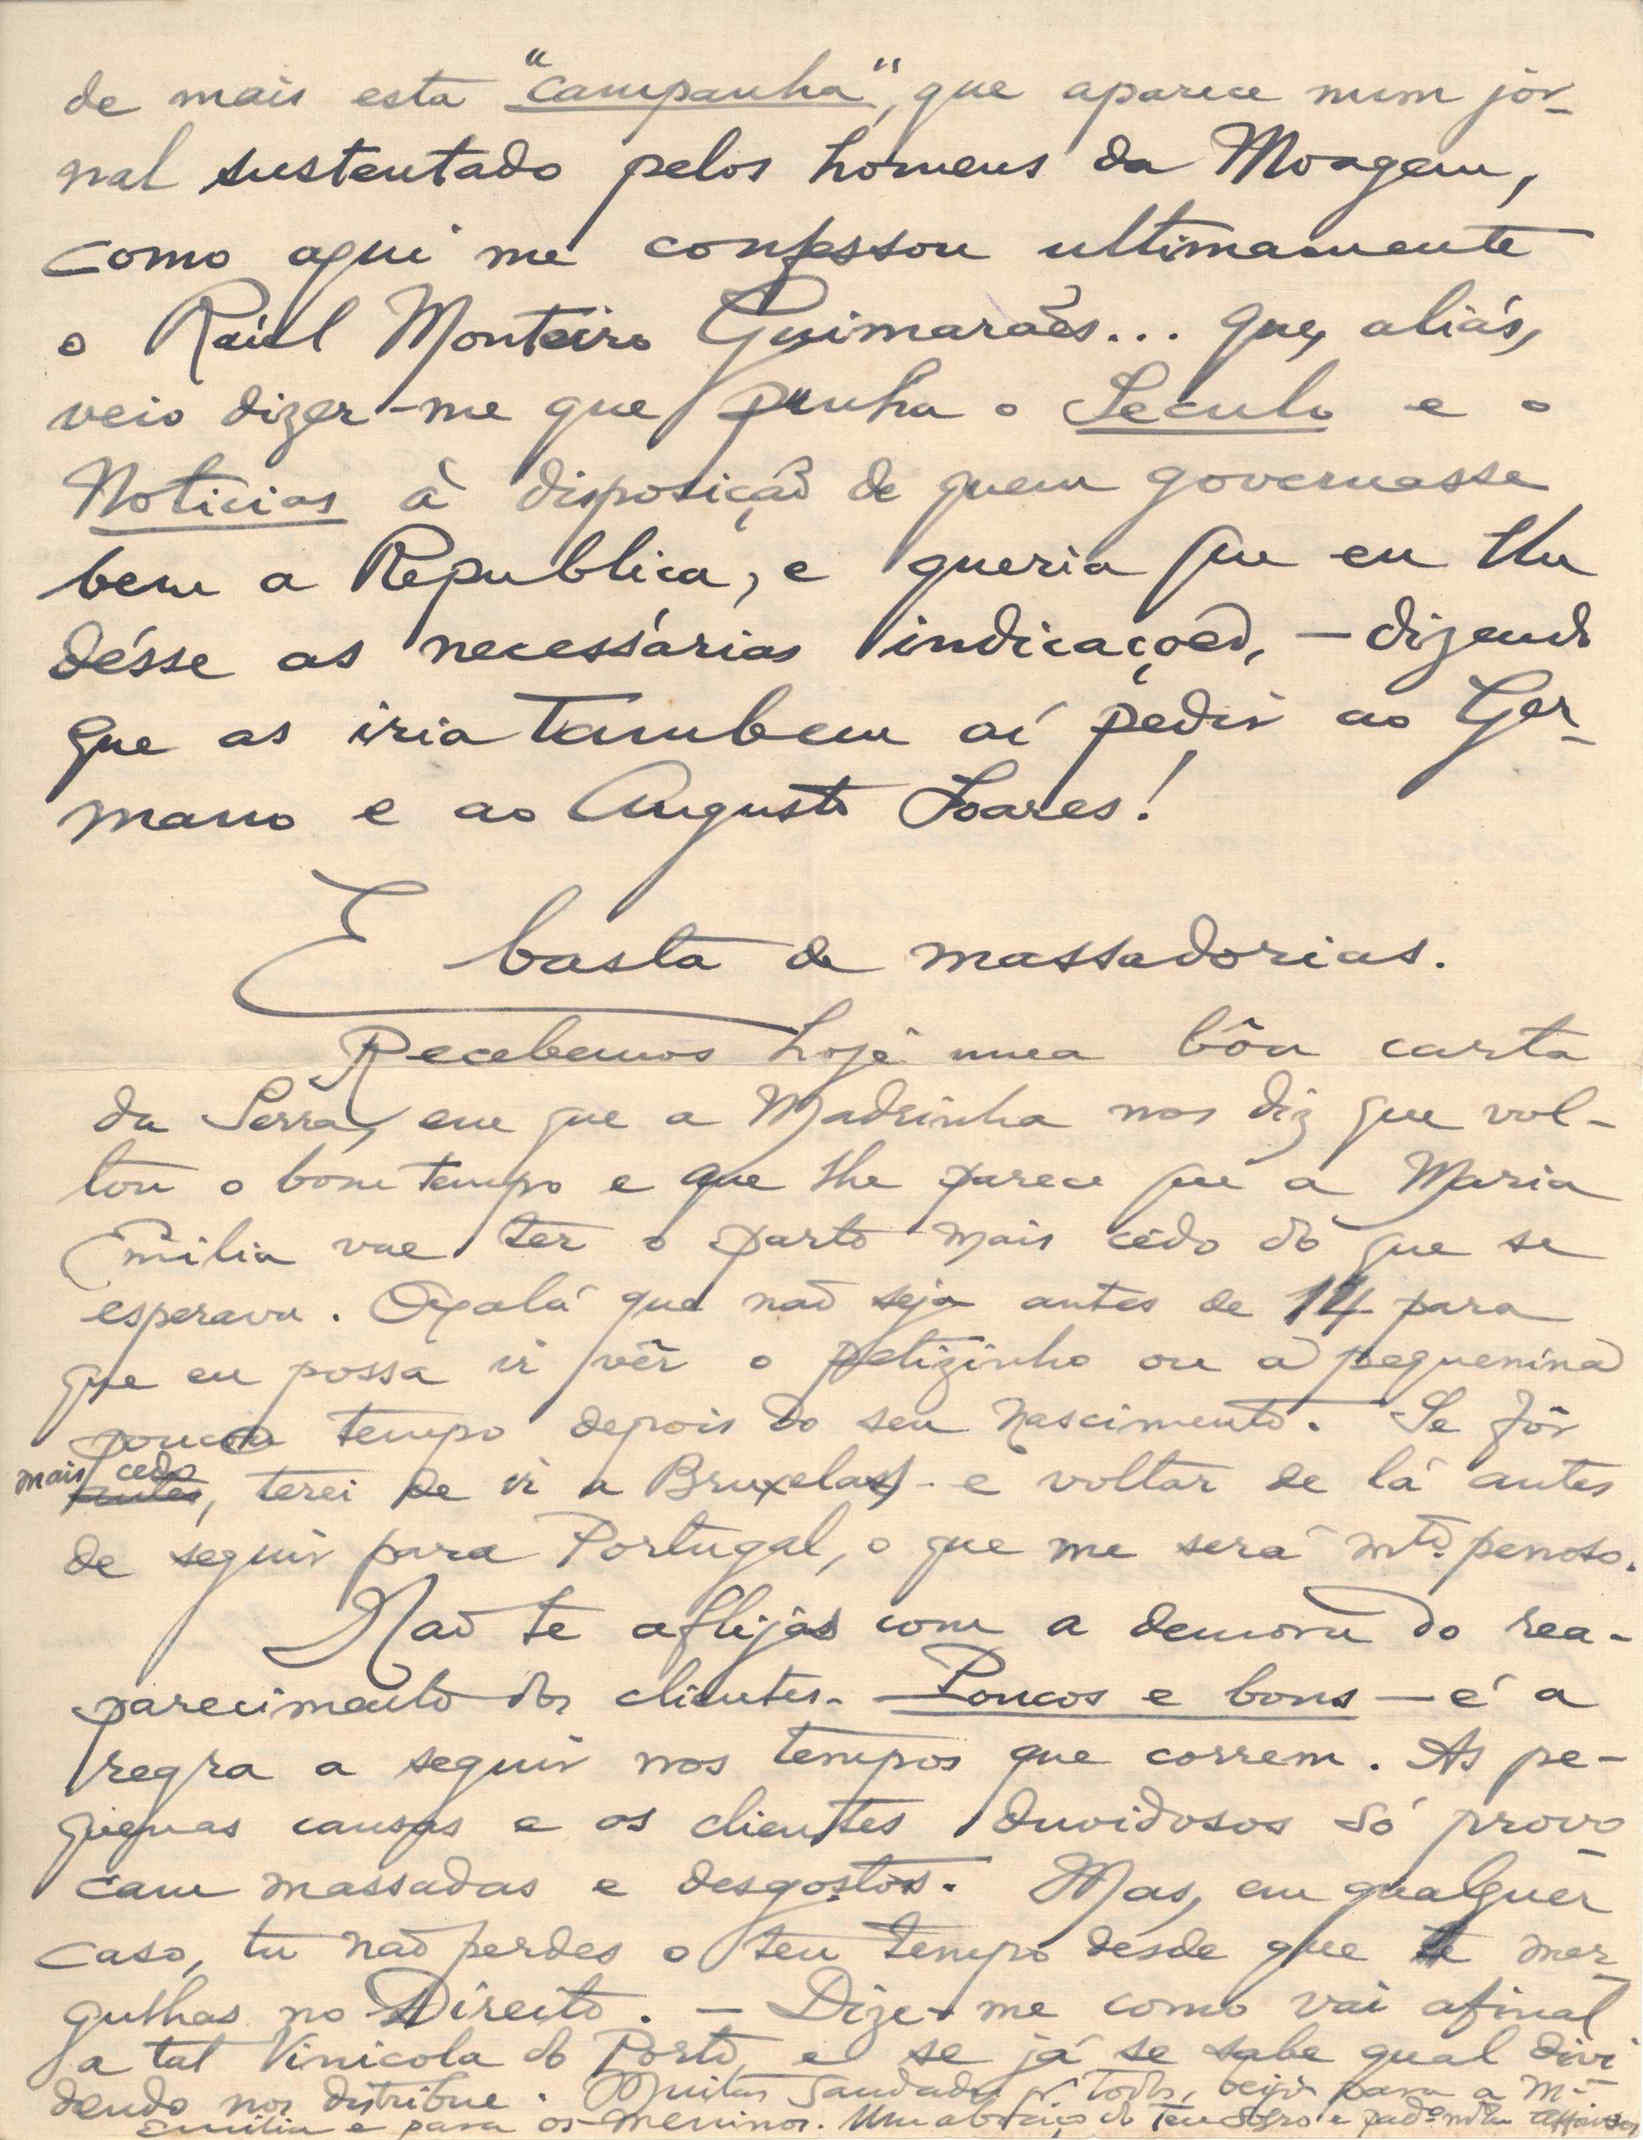 de mais esta "campanha", que aparece num jor-
nal sustentado pelos homens da Moagem,
como aqui me confessou ultimamente
o Raúl Monteiro Guimarães... que, aliás,
veio dizer-me que punha o Seculo e o
Noticias à disposição de quem governasse
bem a Republica, e queria que eu lhe
désse as necessárias indicações, - dizendo
que as iria tambem aí pedir ao Ger-
mano e ao Augusto Soares!
E basta de massadorias.
Recebemos hoje uma bôa carta
da Serra, em que a Madrinha nos diz que vol-
tou o bom tempo e que lhe parece que a Maria
Emilia vae ter o parto mais cêdo do que se
esperava. Oxalá que não seja antes de 14 para
que eu possa ir vêr o petizinho ou a pequenina
pouco tempo depois do seu nascimento. Se fôr
mais cedo, terei de ir a Bruxelas - e voltar de lá antes
de seguir para Portugal, o que me será mto. penoso.
Não te aflijas com a demora do rea-
parecimento dos clientes. Poucos e bons - é a
regra a seguir nos tempos que correm. As pe-
quenas causas e os clientes duvidosos só provo-
cam massadas e desgostos. Mas, em qualquer
caso, tu não perdes o teu tempo desde que te mer-
gulhas no Direito. - Dize-me como vai afinal
a tal Vinicola do Porto, e se já se sabe qual divi-
dendo nos distribue. Muitas saudades pa. todos, beijos para a Ma.
Emilia e para os meninos. Um abraço do teu sogro e